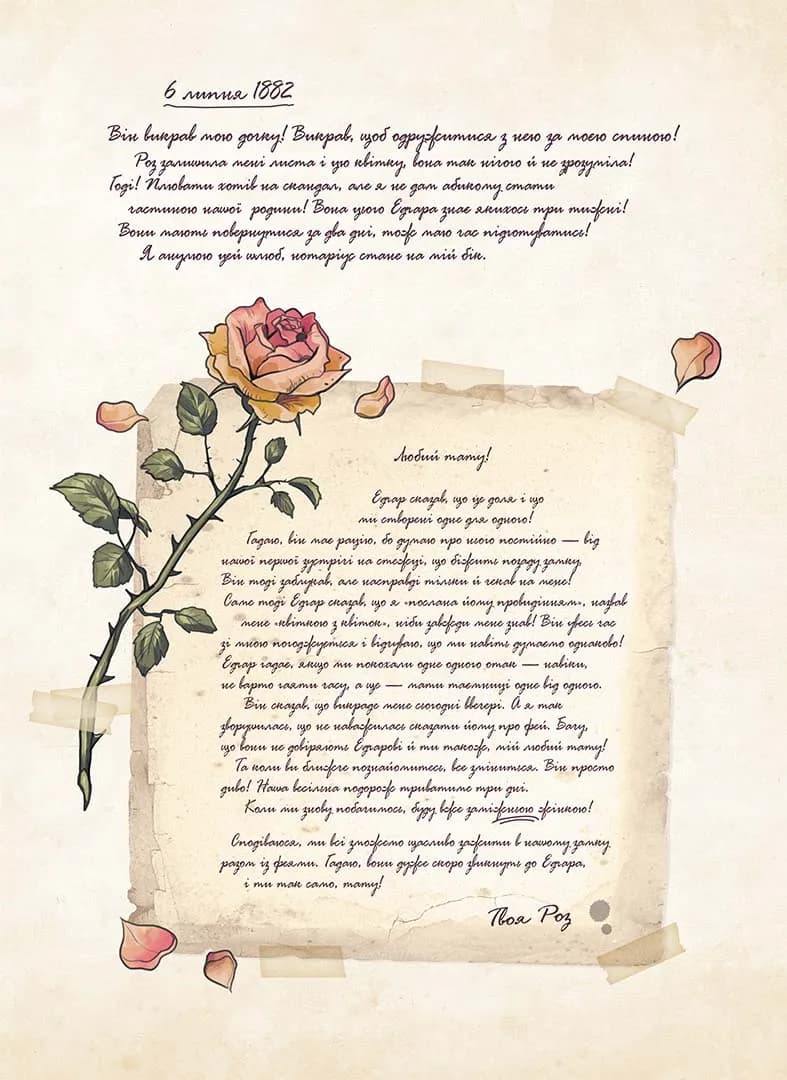 6 липня 1882
Він викрав мою дочку! Викрав, щоб одружитися з нею за моєю спиною!
Роз залишила мені листа і цю квітку, вона так нічого й не зрозуміла!
Годі! Плювати хотів на скандал, але я не дам абикому стати
частиною нашої родини! Вона цього Едґара знає якихось три тижні!
Вони мають повернутися за два дні, тож маю час підготуватись!
Я анулюю цей шлюб, нотаріус стане на мій бік.
Любий тату!
Едґар сказав, що це доля і що
ми створені одне для одного!
Гадаю, він має рацію, бо думаю про нього постійно — від
нашої першої зустрічі на стежці, що біжить позаду замку.
Він тоді заблукав, але насправді тільки й чекав на мене!
Саме тоді Едґар сказав, що я «послана йому провидінням», назвав
мене «квіткою з квіток», ніби завжди мене знав! Він увесь час
зі мною погоджується і відчуваю, що ми навіть думаємо однаково!
Едґар гадає, якщо ми покохали одне одного отак — навіки,
не варто гаяти часу, а ще — мати таємниці одне від одного.
Він сказав, що викраде мене сьогодні ввечері. А я так
зворушилась, що не наважилась сказати йому про фей. Бачу,
що вони не довіряють Едґарові й ти також, мій любий тату!
Та коли ви ближче познайомитесь, все зміниться. Він просто
диво! Наша весільна подорож триватиме три дні.
Коли ми знову побачимось, буду вже заміжньою жінкою!
Сподіваюся, ми всі зможемо щасливо зажити в нашому замку
разом із феями. Гадаю, вони дуже скоро звикнуть до Едґара,
і ти так само, тату!
Твоя Роз